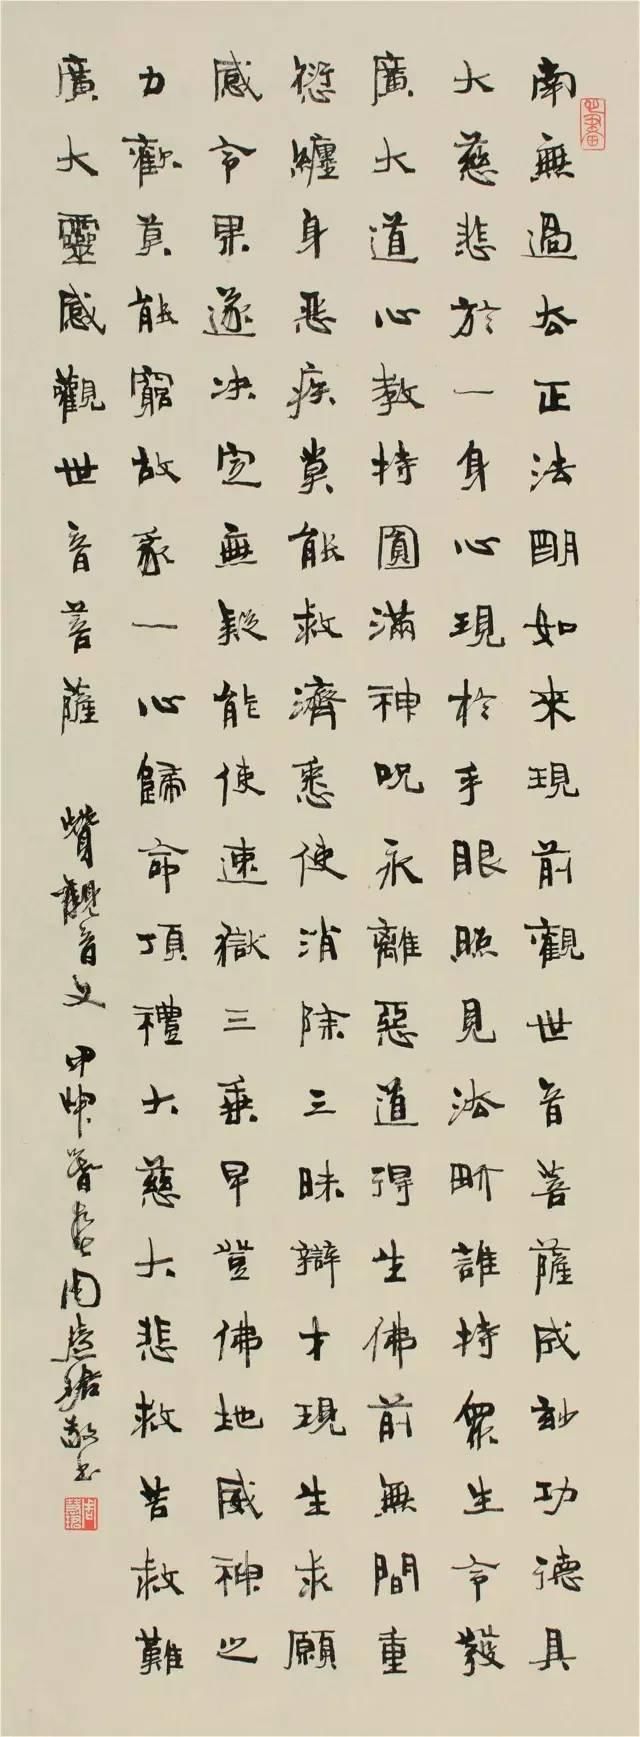 南無過去正法明如來現前觀世音菩薩成妙功德具
大慈悲於一身心現於手眼照見法界護持眾生令發
廣大道心教持圓滿神咒永離惡道得生佛前無間重
愆纏身惡疾莫能救濟悉使消除三昧辯才現生求願
感令果遂決定無疑能使速獄三乘早登佛地威神之
力歡莫能窮故我一心歸命頂禮大慈大悲救苦救難
廣大靈感觀世音菩薩 贊觀音文 甲申 周慧珺敬書
周慧珺